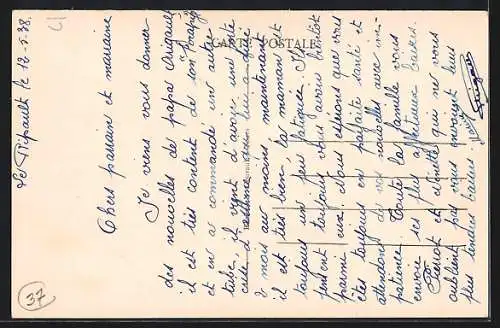 Le Tripault le 12-5-38.
Chers parrain et marraine
Je viens vous donner
des nouvelles de papa Origault
il est très content de son
et en a commandé un autre
tube, il vient d'avoir une
celle d'
2 mois au moins maintenant
il est très bien, la maman est
toujours un peu fatiguée. Ils
pensent toujours vous avoir bientôt
parmi eux. Nous espérons que vous
êtes toujours en parfaite santé et
attendons de vos nouvelles avec im-
patience. Toute la famille vous
envoie ses plus affectueux baisers.
Pierrot et Ginette qui ne vous
oublient pas vous envoient leurs
plus tendres baisers
CARTE POSTALE
37